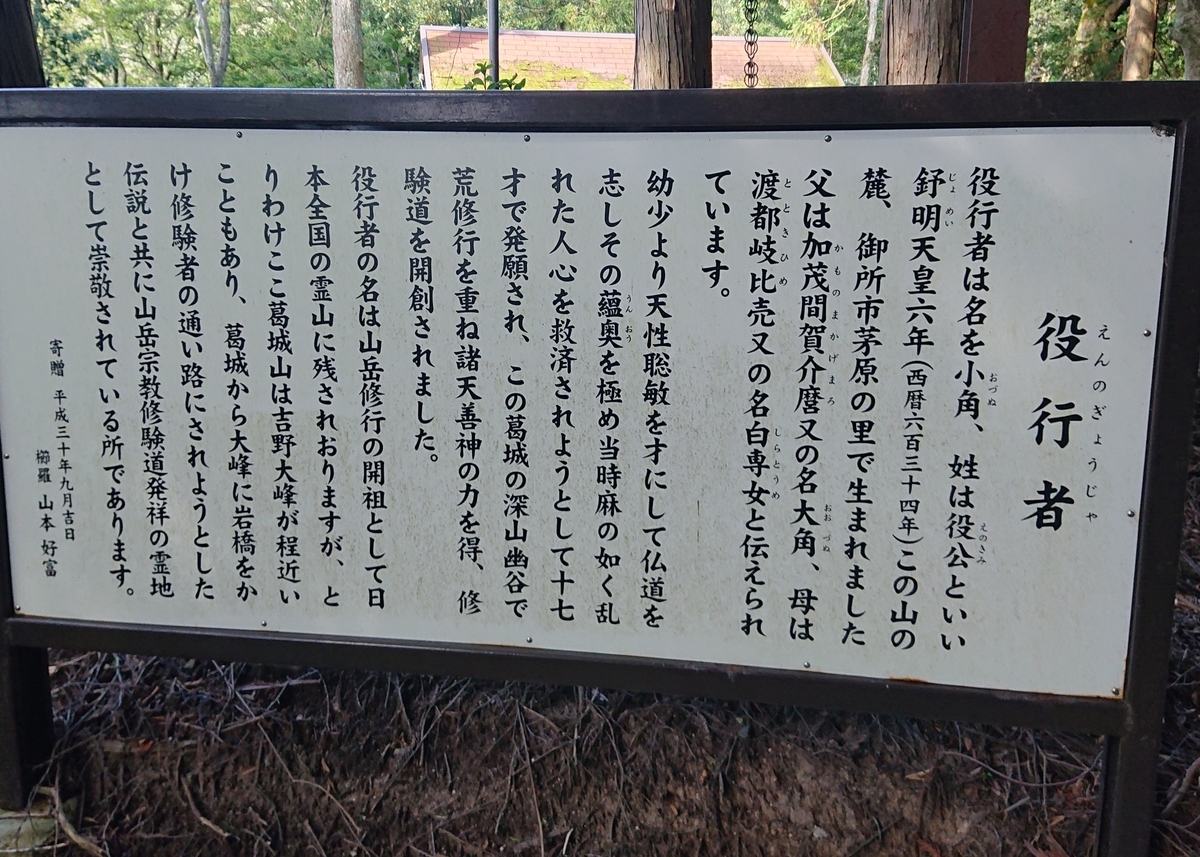 役行者
えんのぎょうじゃ
役行者は名を小角、姓は役公といい
おづぬ えのきみ
舒明天皇六年(西暦六百三十四年)この山の
じょめい
麓、御所市茅原の里で生まれました
父は加茂間賀介麿又の名大角、母は
かものまかげまろ おおづぬ
渡都岐比売又の名白専女と伝えられ
とときひめ しらとうめ
ています。
幼少より天性聡敏を才にして仏道を
志しその蘊奥を極め当時麻の如く乱
うんおう
れた人心を救済されようとして十七
才で発願され、この葛城の深山幽谷で
荒修行を重ね諸天善神の力を得、修
験道を開創されました。
役行者の名は山岳修行の開祖として日
本全国の霊山に残されおりますが、と
りわけここ葛城山は吉野大峰が程近い
こともあり、葛城から大峰に岩橋をか
け修験者の通い路にされようとした
伝説と共に山岳宗教修験道発祥の霊地
として崇敬されている所であります。
寄贈 平成三十年九月吉日
櫛羅 山本好富